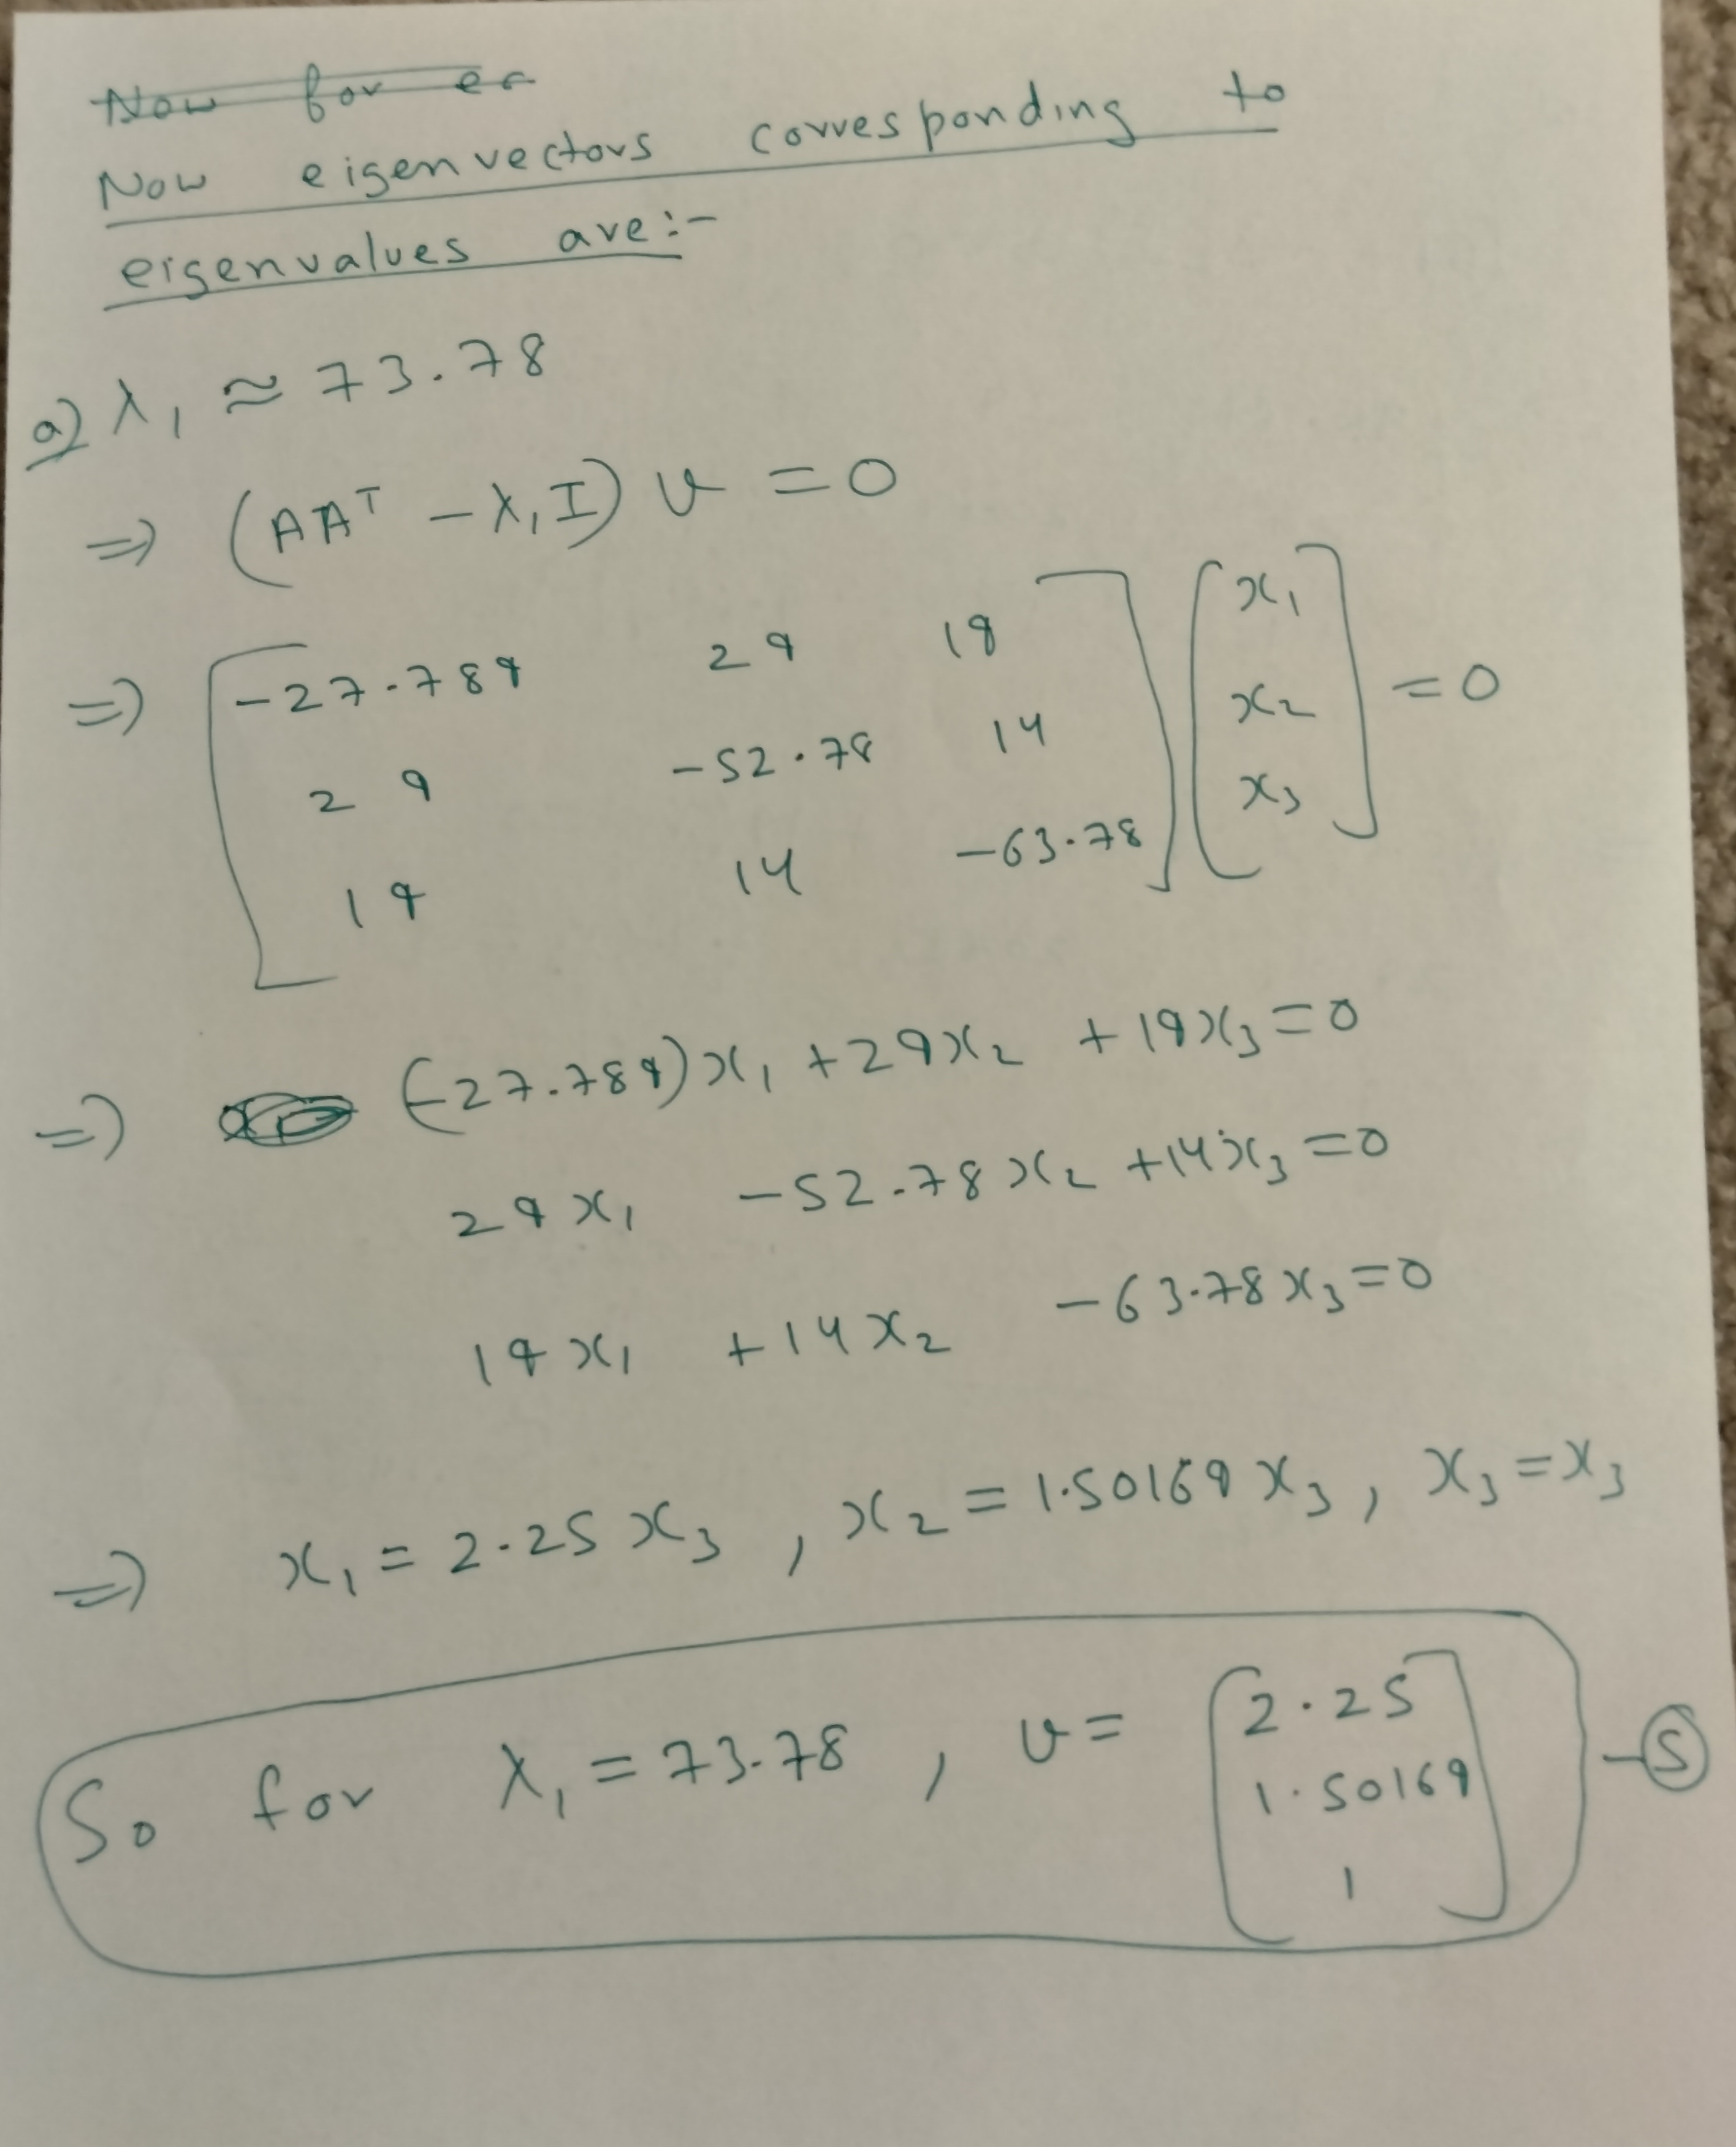 Now for ec
Now eigenvectors corresponding to
eigenvalues are:-
a) λ₁ ≈ 73.78
⇒ (AAᵀ - λ₁I) v = 0
⇒ [-27.789 29 19] [x₁]
[29 -52.78 14] [x₂] = 0
[19 14 -63.78] [x₃]
⇒ (-27.789)x₁ + 29x₂ + 19x₃ = 0
29x₁ - 52.78x₂ + 14x₃ = 0
19x₁ + 14x₂ - 63.78x₃ = 0
⇒ x₁ = 2.25x₃, x₂ = 1.50169x₃, x₃ = x₃
So for λ₁ = 73.78, v = [2.25
1.50169
1] -⑤